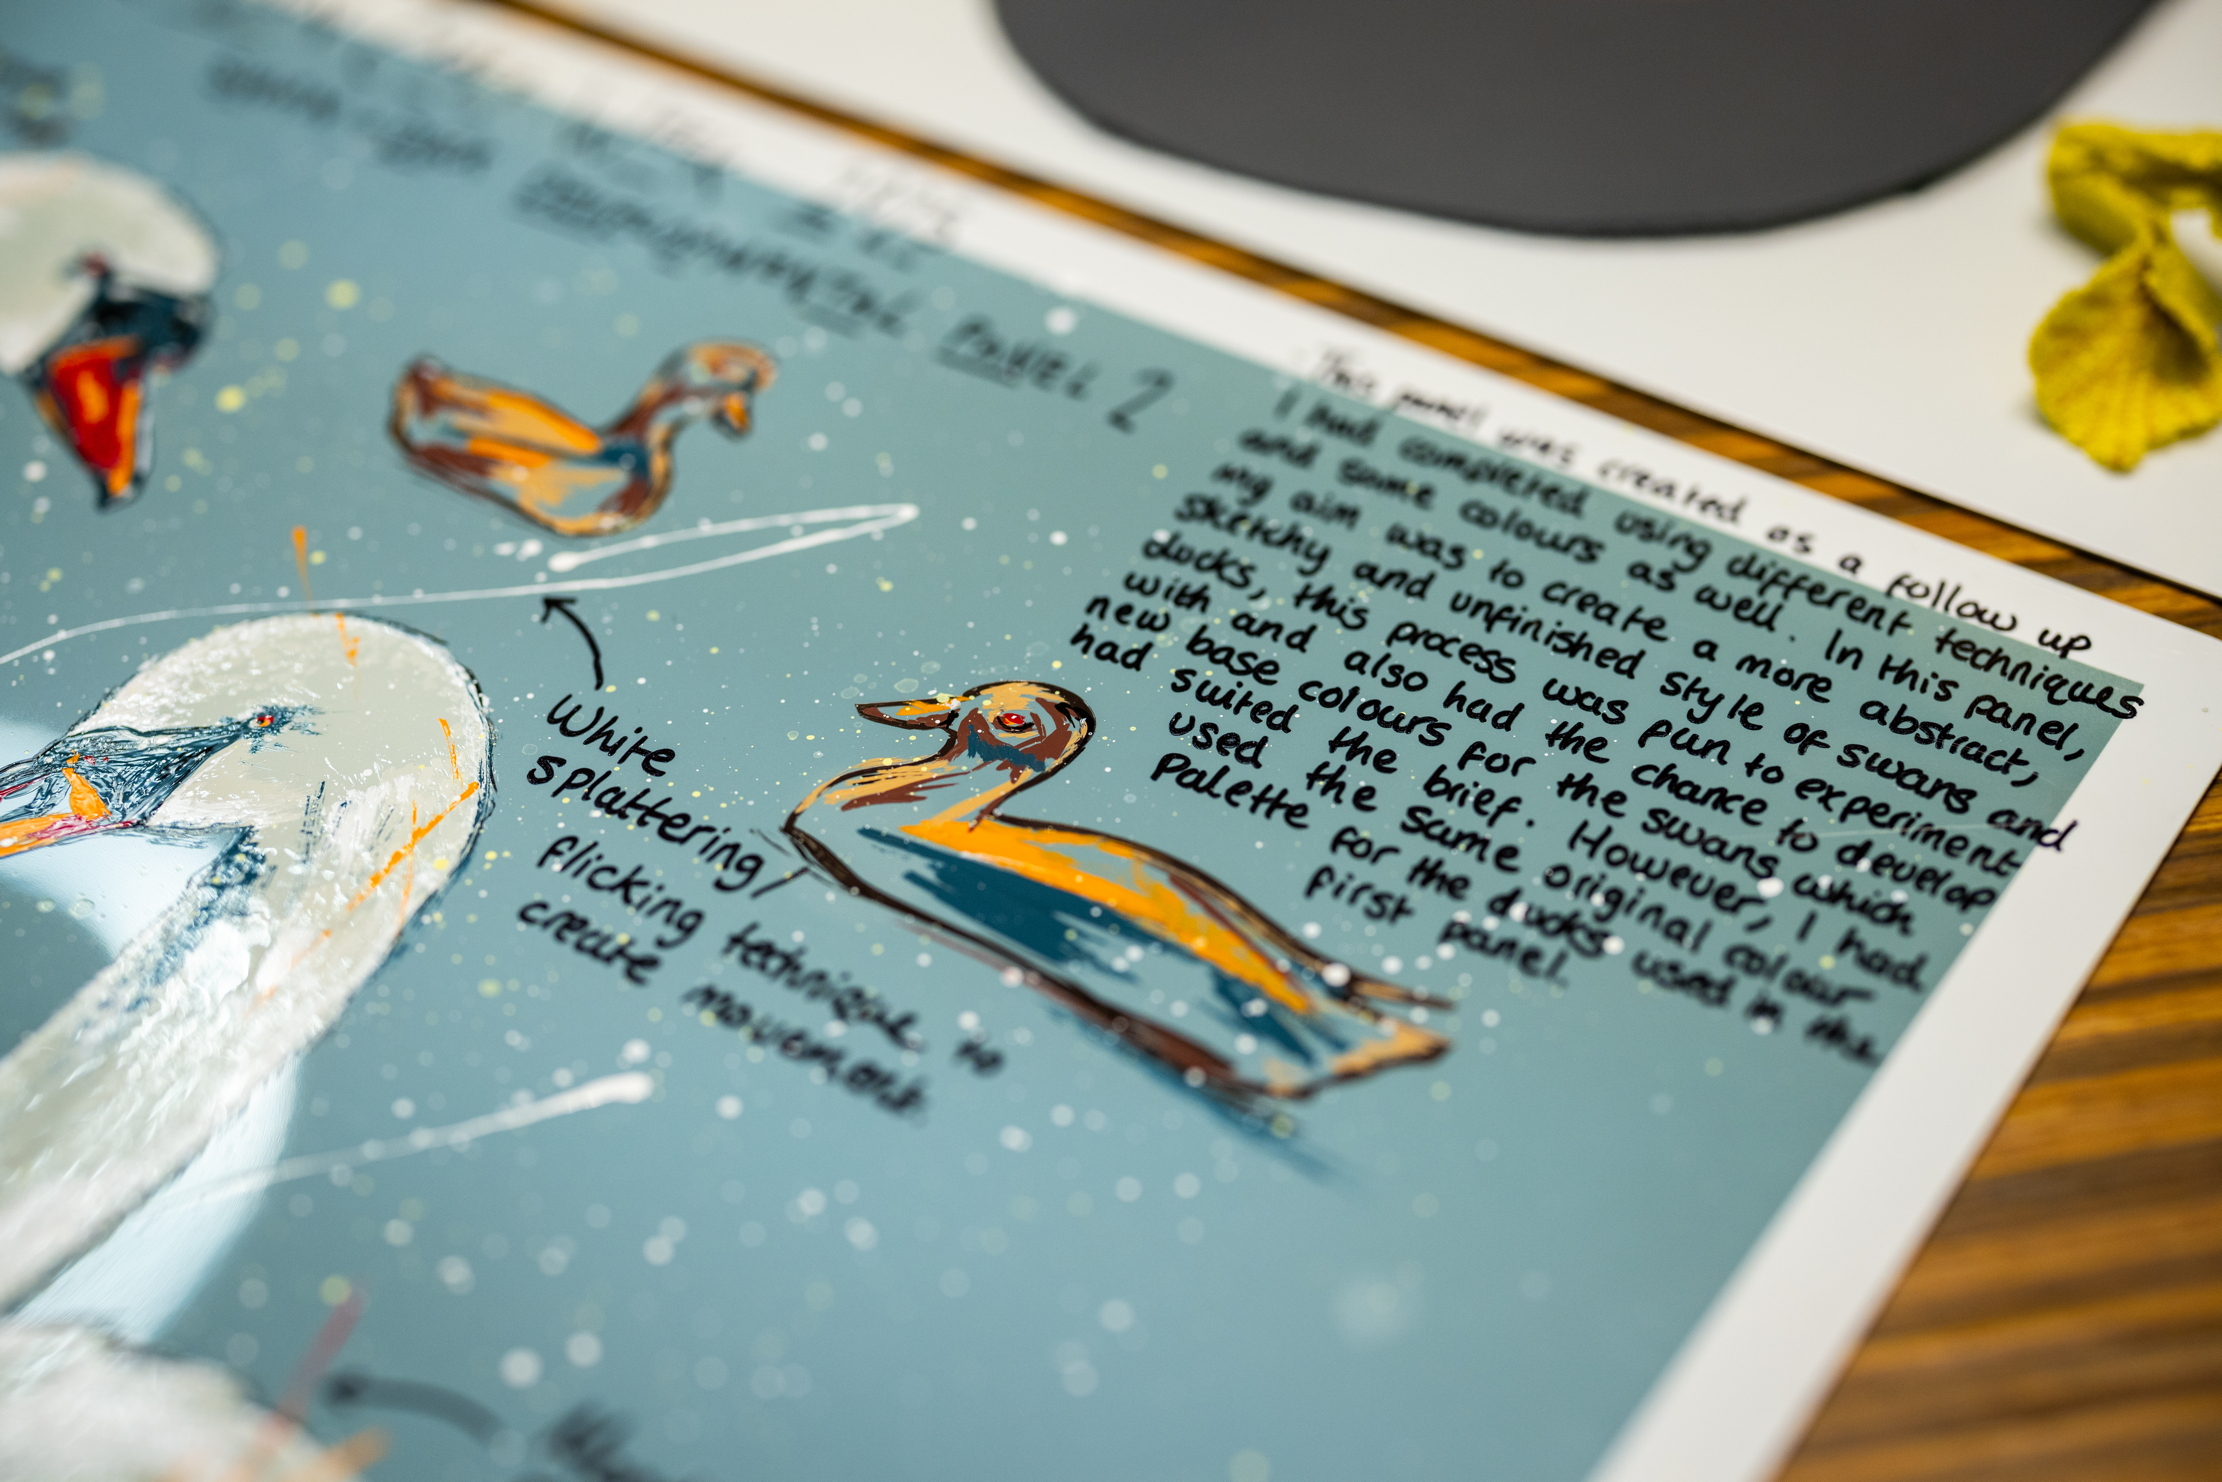 PANEL 2
This panel was created as a follow up
I had completed using different techniques
and some colours as well. In this panel,
my aim was to create a more abstract,
sketchy and unfinished style of swans and
ducks, this process was fun to experiment
with and also had the chance to develop
new base colours for the swans which
had suited the brief. However, I had
used the same original colour
palette for the ducks used in the
first panel.
White
splattering/
flicking technique to
create movement.